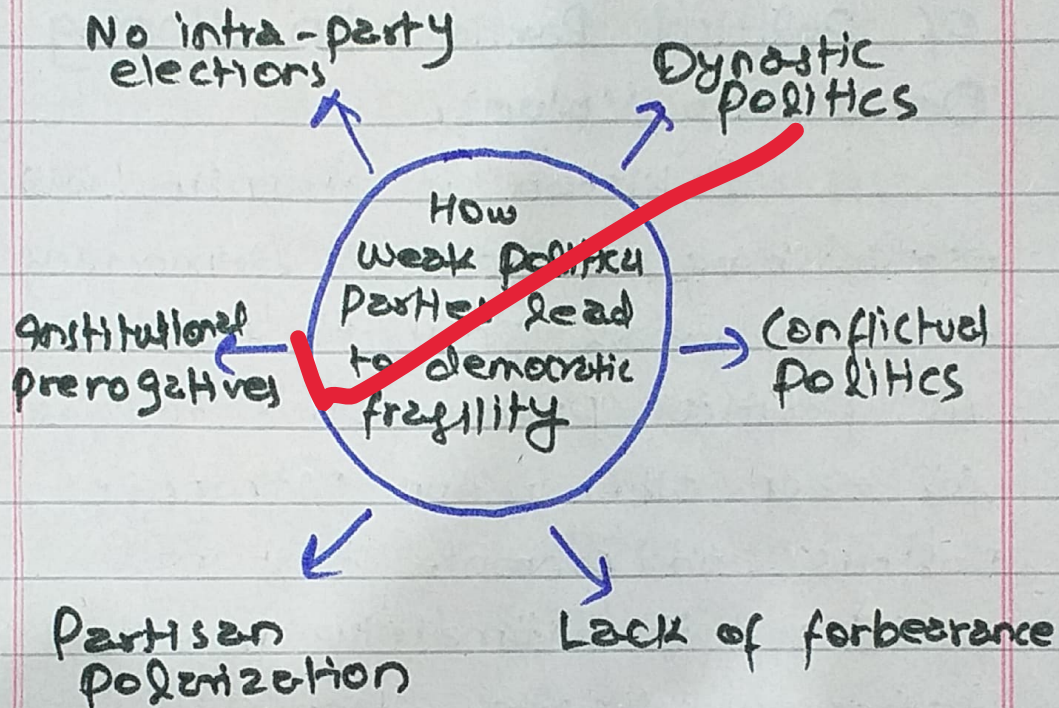 No intra-party
elections
Dynastic
politics
How
weak political
parties lead
to democratic
fragility
Institutional
prerogatives
Conflictual
politics
Partisan
polarization
Lack of forbearance